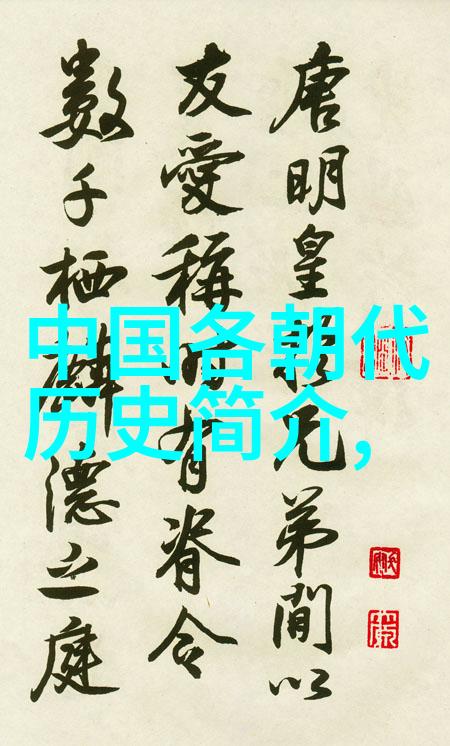 中国各朝代
历史简介,
唐明皇於兄弟間以
友愛稱時有脊令
數千栖麟德之庭